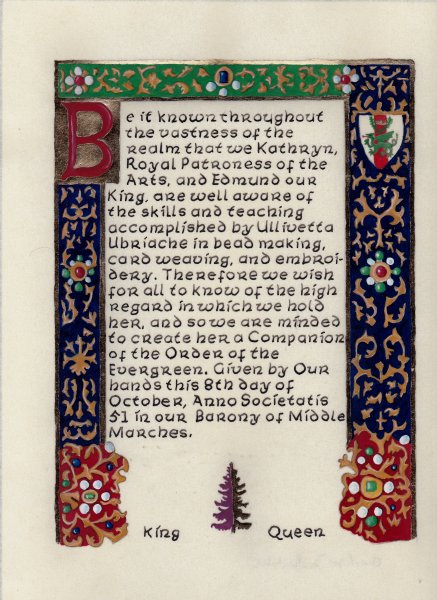 Be it known throughout
the vastness of the
realm that we Kathryn,
Royal Patroness of the
Arts, and Edmund our
King, are well aware of
the skills and teaching
accomplished by Ullivetta
Ubriache in bead making,
card weaving, and embroi-
dery. Therefore we wish
for all to know of the high
regard in which we hold
her, and so we are minded
to create her a Companion
of the Order of the
Evergreen. Given by Our
hands this 8th day of
October, Anno Societatis
51 in our Barony of Middle
Marches.
King Queen